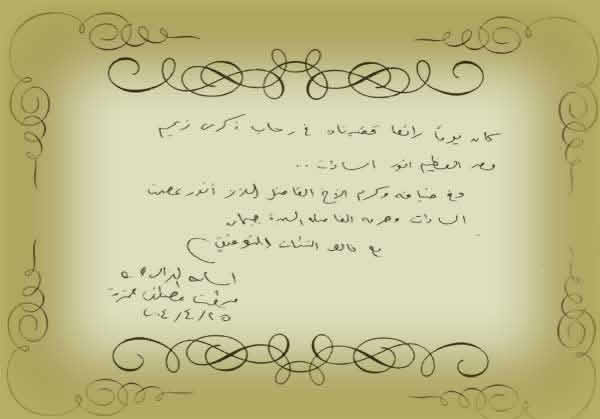 كان يوماً رائعاً قضيناه في رحاب ذكرى زعيم
مصر العظيم انور السادات ..
وفي ضيافة وكرم الأخ الفاضل انور عصمت
السادات وحرمه الفاضله السيدة جيهان
مع خالص التمنيات بالتوفيق
مصطفى
٢٥/٤/٢٠٠٤